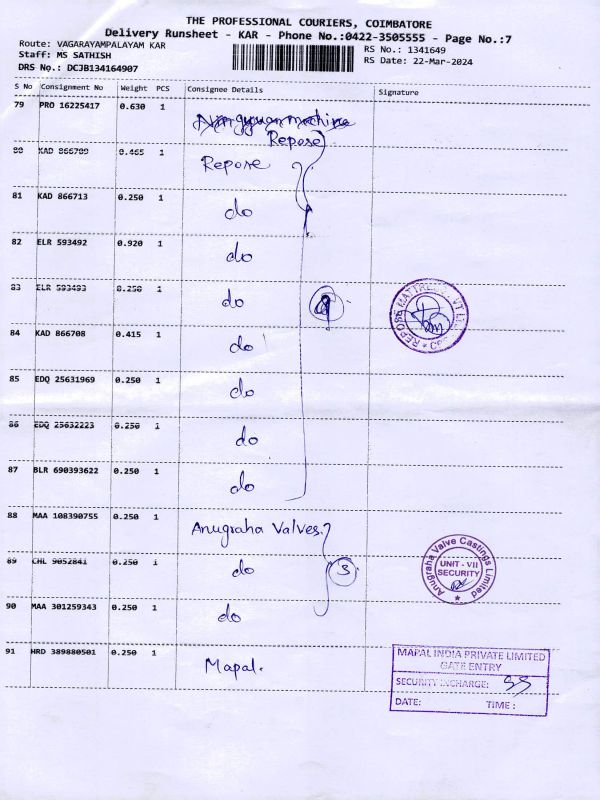 THE PROFESSIONAL COURIERS, COIMBATORE
Delivery Runsheet - KAR - Phone No.:0422-3505555 - Page No.:7
Route: VAGARAYAMPALAYAM KAR
RS No.: 1341649
Staff: MS SATHISH
RS Date: 22-Mar-2024
DRS No.: DCJB134164907
S No Consignment No Weight PCS Consignee Details Signature
79 PRO 16225417 0.630 1
Repose
80 KAD 866709 0.465 1 Repose
81 KAD 866713 0.250 1 do
82 ELR 593492 0.920 1 do
83 ELR 593493 0.250 1 do
84 KAD 866708 0.415 1 do
85 EDQ 25631969 0.250 1 do
86 EDQ 25632223 0.250 1 do
87 BLR 690393622 0.250 1 do
88 MAA 108390755 0.250 1 Anugraha Valves.
89 CHL 9052841 0.250 1 do 3
Anugraha Valve Castings Limited
UNIT - VII
SECURITY
90 MAA 301259343 0.250 1 do
91 HRD 389880501 0.250 1 Mapal.
MAPAL INDIA PRIVATE LIMITED
GATE ENTRY
SECURITY INCHARGE:
DATE: TIME :